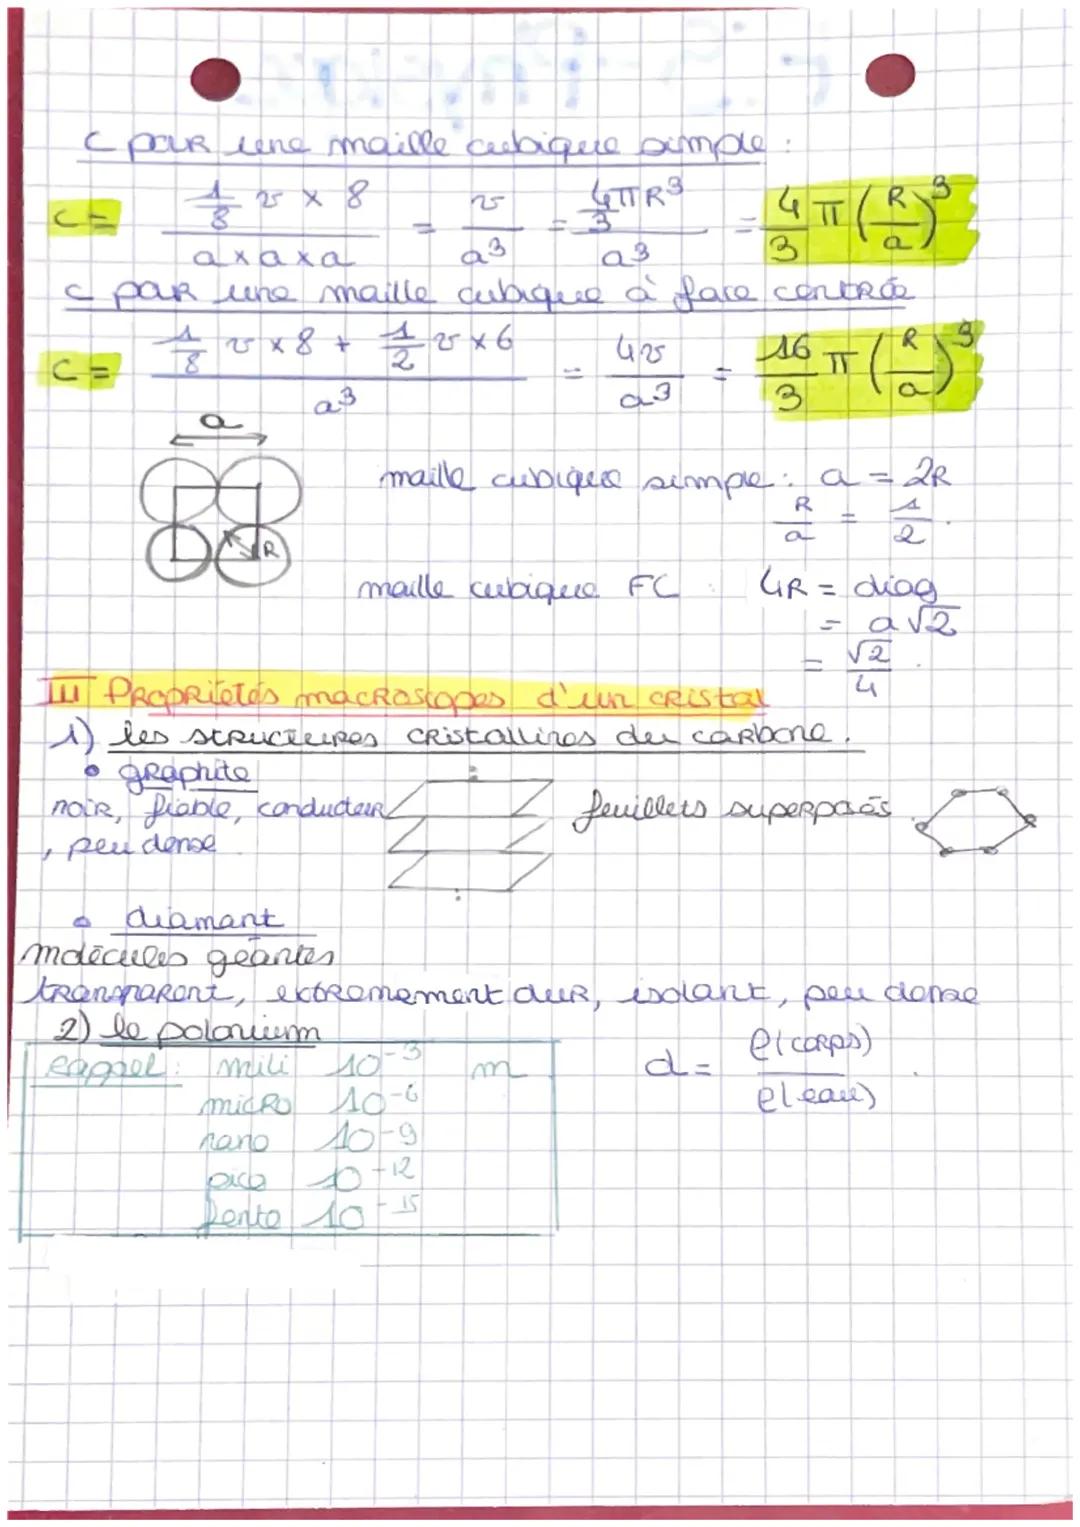 C par une maille cubique simple :
C = (1/8 v × 8)/(a×a×a) = v/a³ = (4/3 πR³)/a³ = 4/3 π (R/a)³
C par une maille cubique à face centrée
C = (1/8 v × 8 + 1/2 v × 6)/a³ = 4v/a³ = 16/3 π (R/a)³
a
maille cubique simple : a = 2R
R/a = 1/2 .
R
maille cubique FC : 4R = diag
= a√2
= √2/4 .
III Propriétés macroscopes d'un cristal
1) les structures cristallines du carbone.
• graphite
noir, fiable, conducteur
, peu dense
feuillets superposés
• diamant
molécules géantes
transparent, extremement dur, isolant, peu dense
2) le polonium
Rappel : mili 10⁻³ m
micro 10⁻⁶
nano 10⁻⁹
pico 10⁻¹²
fento 10⁻¹⁵
d = ρ(corps)/ρ(eau) .